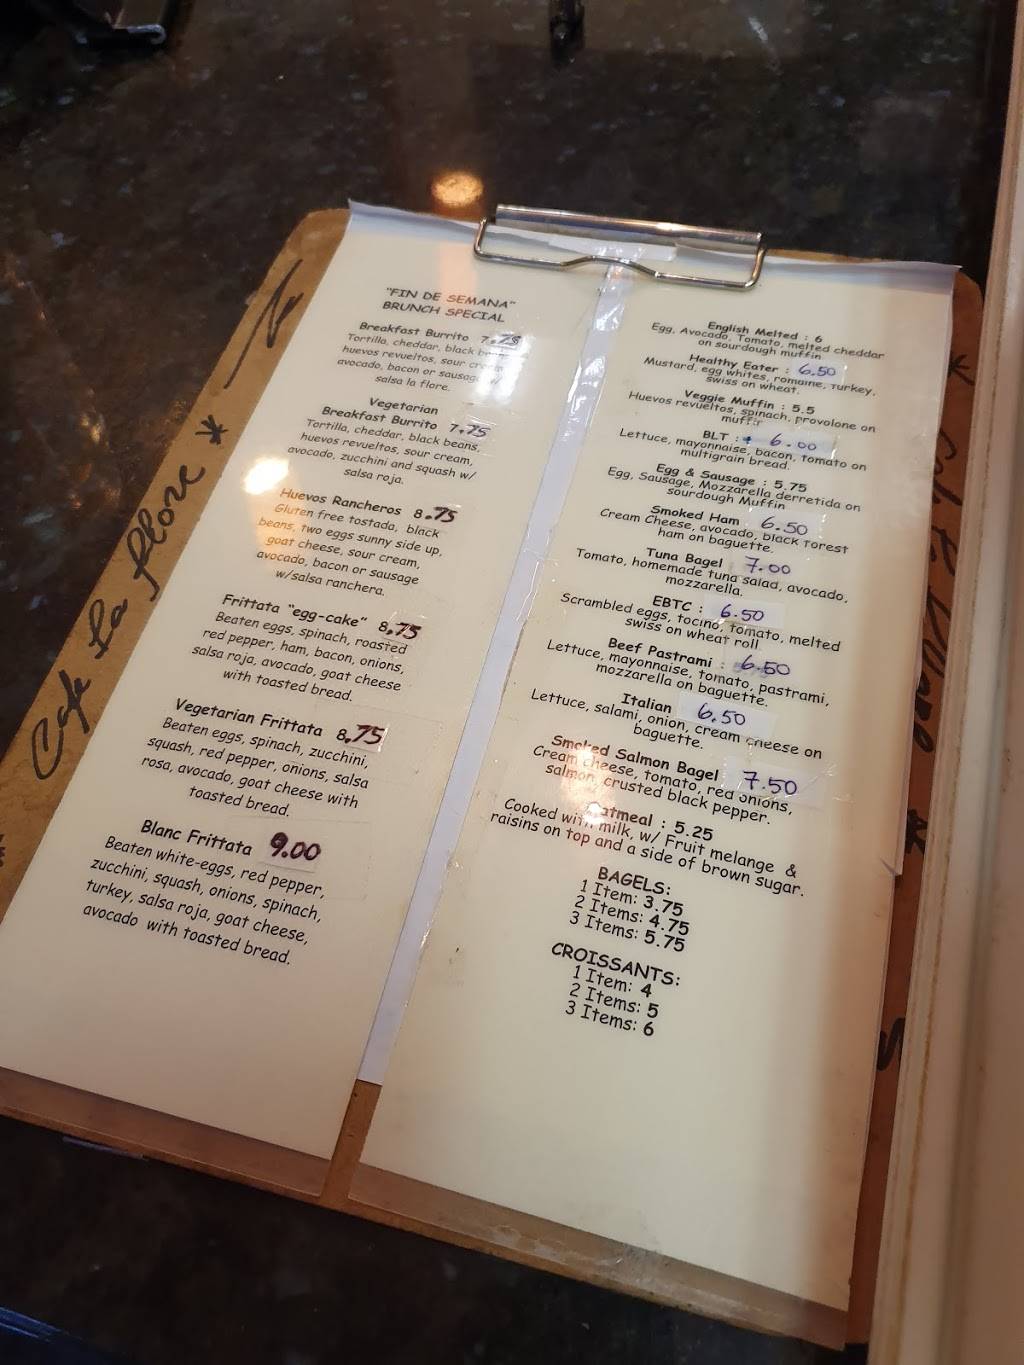 Cafe La flore *
"FIN DE SEMANA"
BRUNCH SPECIAL
Breakfast Burrito 7.75
Tortilla, cheddar, black
huevos revueltos, sour cream
avocado, bacon or sausage w/
salsa la flore.
Vegetarian
Breakfast Burrito 7.75
Tortilla, cheddar, black beans,
huevos revueltos, sour cream,
avocado, zucchini and squash w/
salsa roja.
Huevos Rancheros 8.75
Gluten free tostada, black
beans, two eggs sunny side up,
goat cheese, sour cream,
avocado, bacon or sausage
w/salsa ranchera.
Frittata "egg-cake" 8.75
Beaten eggs, spinach, roasted
red pepper, ham, bacon, onions,
salsa roja, avocado, goat cheese
with toasted bread.
Vegetarian Frittata 8.75
Beaten eggs, spinach, zucchini,
squash, red pepper, onions, salsa
rosa, avocado, goat cheese with
toasted bread.
Blanc Frittata 9.00
Beaten white-eggs, red pepper,
zucchini, squash, onions, spinach,
turkey, salsa roja, goat cheese,
avocado with toasted bread.
English Melted : 6
Egg, Avocado, Tomato, melted cheddar
on sourdough muffin
Healthy Eater : 6.50
Mustard, egg whites, romaine, turkey,
swiss on wheat.
Veggie Muffin : 5.5
Huevos revueltos, spinach, provolone on
muffir
BLT : 6.00
Lettuce, mayonnaise, bacon, tomato on
multigrain bread.
Egg & Sausage : 5.75
Egg, Sausage, Mozzarella derretida on
sourdough Muffin
Smoked Ham 6.50
Cream Cheese, avocado, black forest
ham on baguette.
Tuna Bagel 7.00
Tomato, homemade tuna salad, avocado,
mozzarella.
EBTC : 6.50
Scrambled eggs, tocino, tomato, melted
swiss on wheat roll
Beef Pastrami : 6.50
Lettuce, mayonnaise, tomato, pastrami,
mozzarella on baguette.
Italian 6.50
Lettuce, salami, onion, cream cheese on
baguette.
Smoked Salmon Bagel 7.50
Cream cheese, tomato, red onions,
salmon, crusted black pepper.
Oatmeal : 5.25
Cooked with milk, w/ Fruit melange &
raisins on top and a side of brown sugar.
BAGELS:
1 Item: 3.75
2 Items: 4.75
3 Items: 5.75
CROISSANTS:
1 Item: 4
2 Items: 5
3 Items: 6